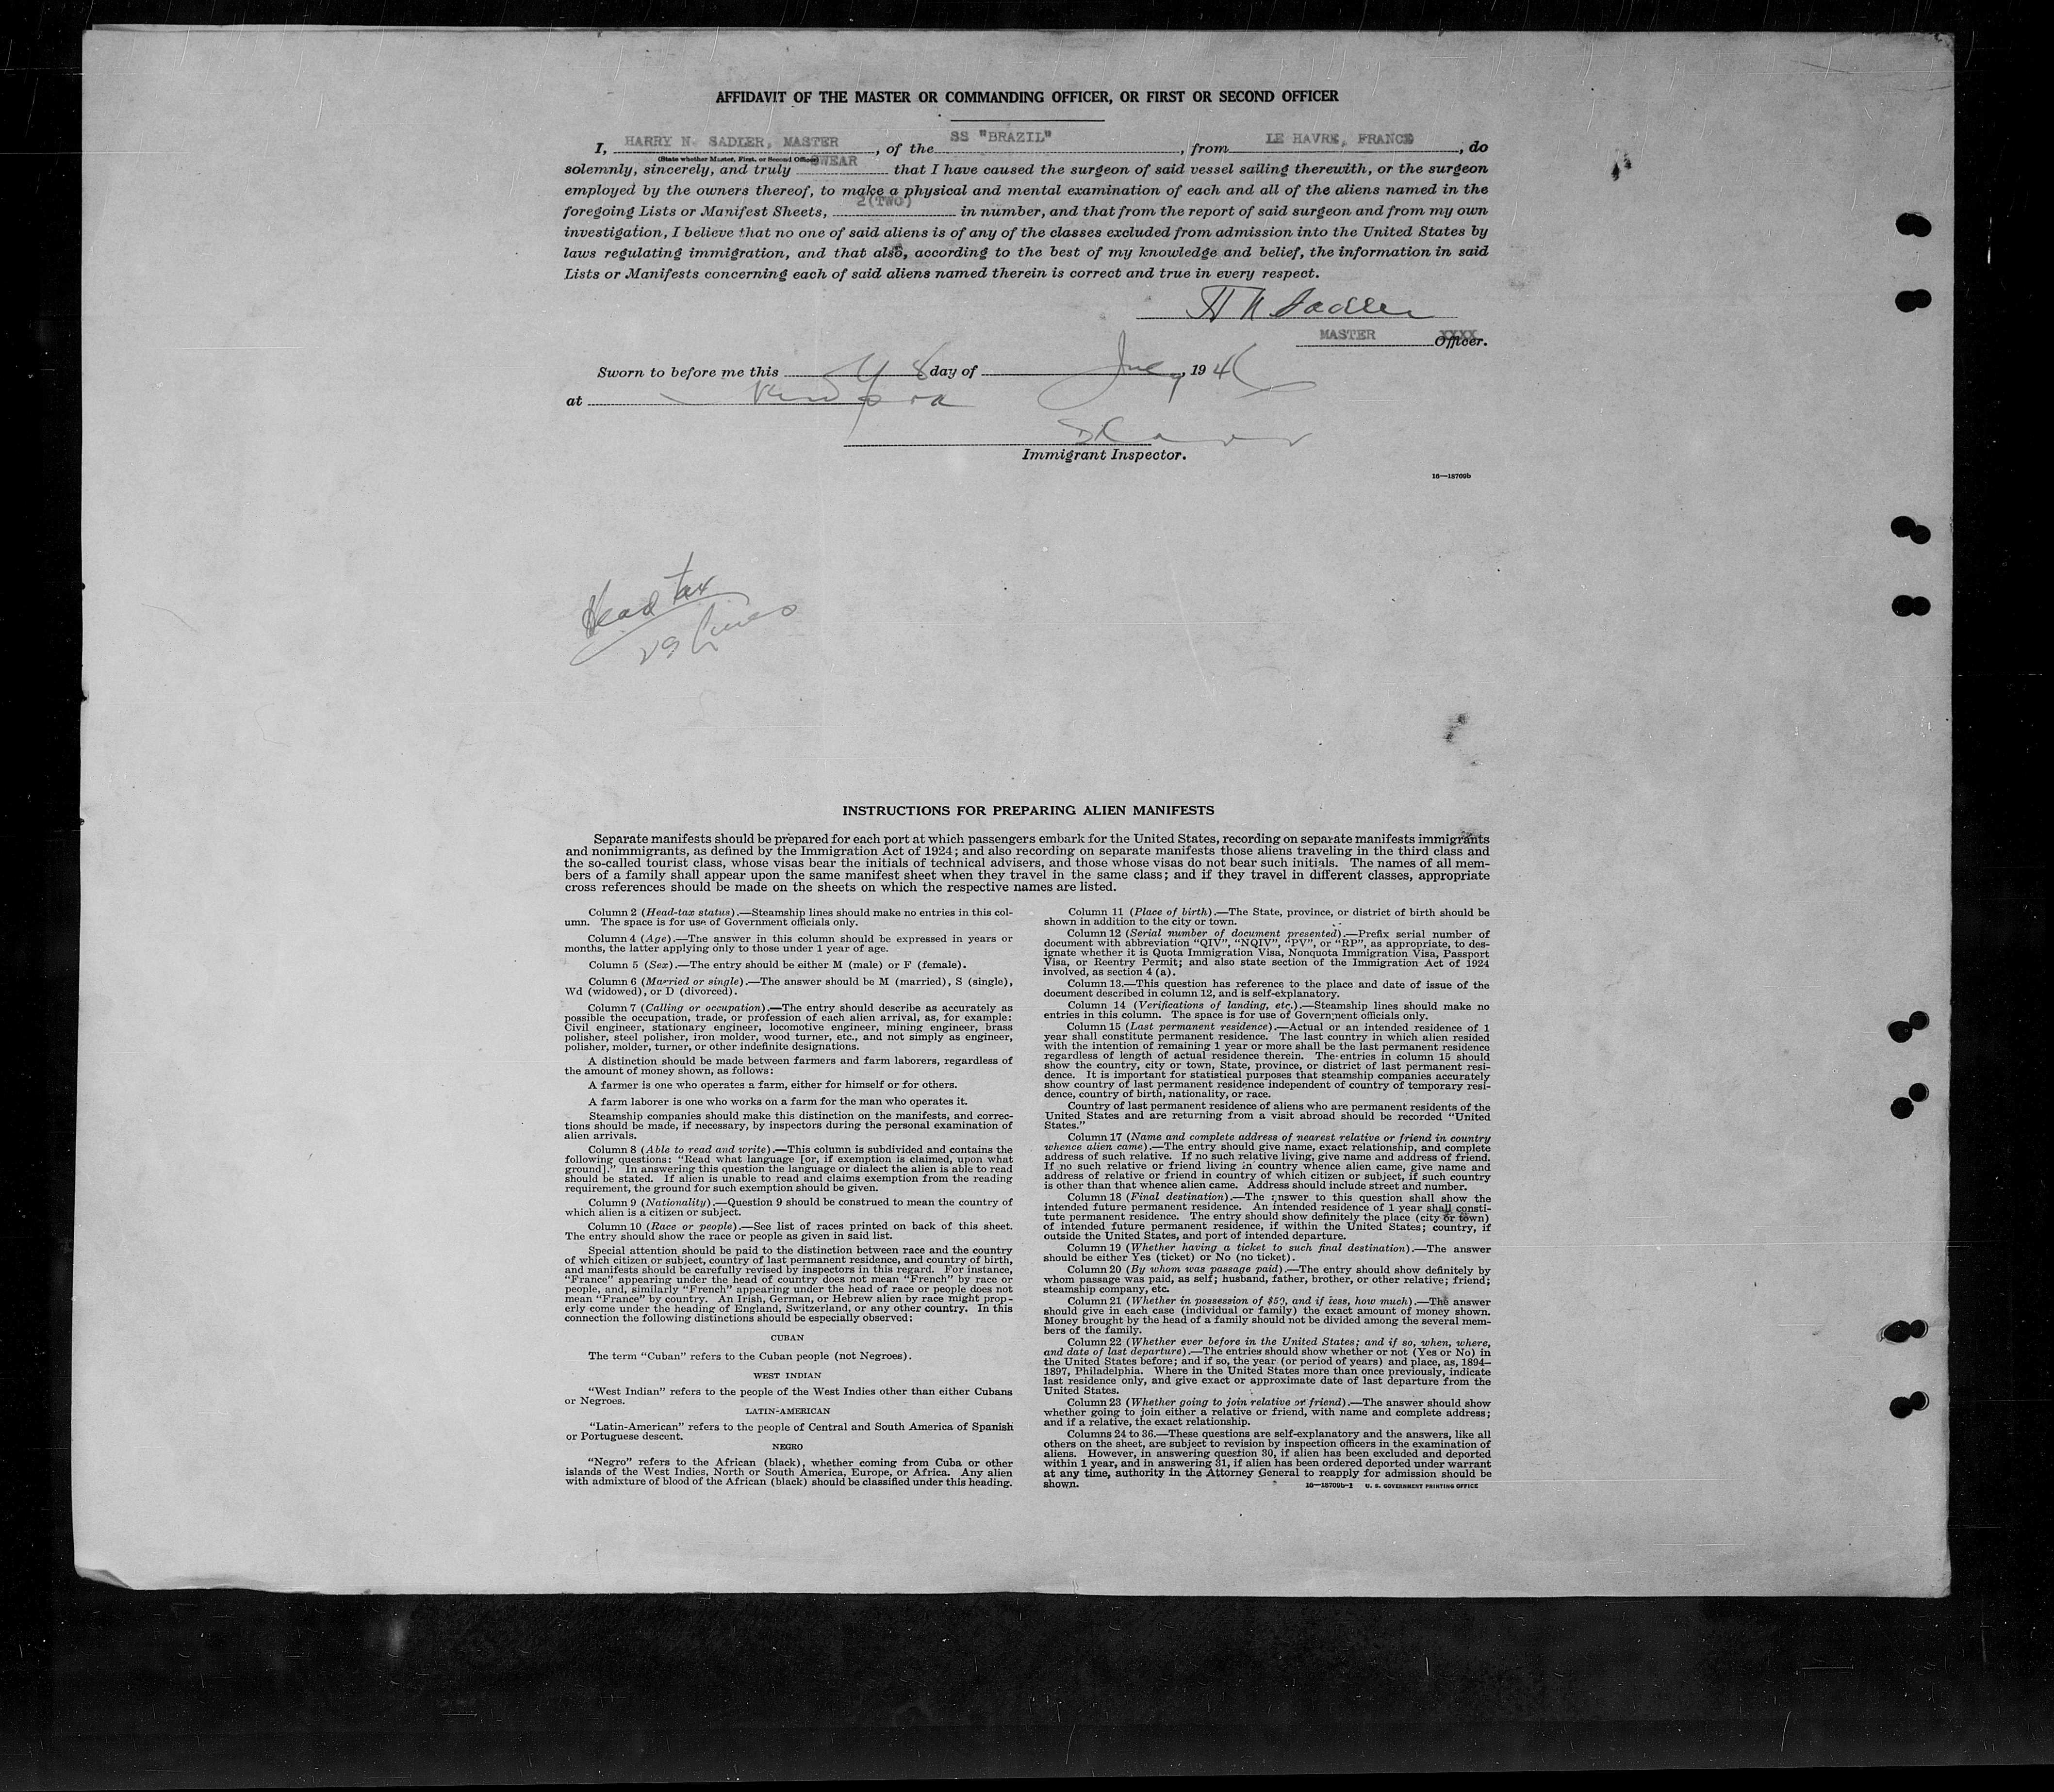 AFFIDAVIT OF THE MASTER OR COMMANDING OFFICER, OR FIRST OR SECOND OFFICER
I, HARRY N. SADLER, MASTER, of the SS "BRAZIL", from LE HAVRE, FRANCE, do
(State whether Master, First, or Second Officer)
solemnly, sincerely, and truly SWEAR that I have caused the surgeon of said vessel sailing therewith, or the surgeon
employed by the owners thereof, to make a physical and mental examination of each and all of the aliens named in the
foregoing Lists or Manifest Sheets, 2(TWO) in number, and that from the report of said surgeon and from my own
investigation, I believe that no one of said aliens is of any of the classes excluded from admission into the United States by
laws regulating immigration, and that also, according to the best of my knowledge and belief, the information in said
Lists or Manifests concerning each of said aliens named therein is correct and true in every respect.
H N Sadler
MASTER XXXX Officer.
Sworn to before me this 8 day of July, 1946
at New York
Immigrant Inspector.
16—18709b
Head tax
29 lines
INSTRUCTIONS FOR PREPARING ALIEN MANIFESTS
Separate manifests should be prepared for each port at which passengers embark for the United States, recording on separate manifests immigrants
and nonimmigrants, as defined by the Immigration Act of 1924; and also recording on separate manifests those aliens traveling in the third class and
the so-called tourist class, whose visas bear the initials of technical advisers, and those whose visas do not bear such initials. The names of all mem-
bers of a family shall appear upon the same manifest sheet when they travel in the same class; and if they travel in different classes, appropriate
cross references should be made on the sheets on which the respective names are listed.
Column 2 (Head-tax status).—Steamship lines should make no entries in this col-
umn. The space is for use of Government officials only.
Column 4 (Age).—The answer in this column should be expressed in years or
months, the latter applying only to those under 1 year of age.
Column 5 (Sex).—The entry should be either M (male) or F (female).
Column 6 (Married or single).—The answer should be M (married), S (single),
Wd (widowed), or D (divorced).
Column 7 (Calling or occupation).—The entry should describe as accurately as
possible the occupation, trade, or profession of each alien arrival, as, for example:
Civil engineer, stationary engineer, locomotive engineer, mining engineer, brass
polisher, steel polisher, iron molder, wood turner, etc., and not simply as engineer,
polisher, molder, turner, or other indefinite designations.
A distinction should be made between farmers and farm laborers, regardless of
the amount of money shown, as follows:
A farmer is one who operates a farm, either for himself or for others.
A farm laborer is one who works on a farm for the man who operates it.
Steamship companies should make this distinction on the manifests, and correc-
tions should be made, if necessary, by inspectors during the personal examination of
alien arrivals.
Column 8 (Able to read and write).—This column is subdivided and contains the
following questions: "Read what language [or, if exemption is claimed, upon what
ground]." In answering this question the language or dialect the alien is able to read
should be stated. If alien is unable to read and claims exemption from the reading
requirement, the ground for such exemption should be given.
Column 9 (Nationality).—Question 9 should be construed to mean the country of
which alien is a citizen or subject.
Column 10 (Race or people).—See list of races printed on back of this sheet.
The entry should show the race or people as given in said list.
Special attention should be paid to the distinction between race and the country
of which citizen or subject, country of last permanent residence, and country of birth,
and manifests should be carefully revised by inspectors in this regard. For instance,
"France" appearing under the head of country does not mean "French" by race or
people, and, similarly "French" appearing under the head of race or people does not
mean "France" by country. An Irish, German, or Hebrew alien by race might prop-
erly come under the heading of England, Switzerland, or any other country. In this
connection the following distinctions should be especially observed:
CUBAN
The term "Cuban" refers to the Cuban people (not Negroes).
WEST INDIAN
"West Indian" refers to the people of the West Indies other than either Cubans
or Negroes.
LATIN-AMERICAN
"Latin-American" refers to the people of Central and South America of Spanish
or Portuguese descent.
NEGRO
"Negro" refers to the African (black), whether coming from Cuba or other
islands of the West Indies, North or South America, Europe, or Africa. Any alien
with admixture of blood of the African (black) should be classified under this heading.
Column 11 (Place of birth).—The State, province, or district of birth should be
shown in addition to the city or town.
Column 12 (Serial number of document presented).—Prefix serial number of
document with abbreviation "QIV", "NQIV", "PV", or "RP", as appropriate, to des-
ignate whether it is Quota Immigration Visa, Nonquota Immigration Visa, Passport
Visa, or Reentry Permit; and also state section of the Immigration Act of 1924
involved, as section 4 (a).
Column 13.—This question has reference to the place and date of issue of the
document described in column 12, and is self-explanatory.
Column 14 (Verifications of landing, etc.).—Steamship lines should make no
entries in this column. The space is for use of Government officials only.
Column 15 (Last permanent residence).—Actual or an intended residence of 1
year shall constitute permanent residence. The last country in which alien resided
with the intention of remaining 1 year or more shall be the last permanent residence
regardless of length of actual residence therein. The entries in column 15 should
show the country, city or town, State, province, or district of last permanent resi-
dence. It is important for statistical purposes that steamship companies accurately
show country of last permanent residence independent of country of temporary resi-
dence, country of birth, nationality, or race.
Country of last permanent residence of aliens who are permanent residents of the
United States and are returning from a visit abroad should be recorded "United
States."
Column 17 (Name and complete address of nearest relative or friend in country
whence alien came).—The entry should give name, exact relationship, and complete
address of such relative. If no such relative living, give name and address of friend.
If no such relative or friend living in country whence alien came, give name and
address of relative or friend in country of which citizen or subject, if such country
is other than that whence alien came. Address should include street and number.
Column 18 (Final destination).—The answer to this question shall show the
intended future permanent residence. An intended residence of 1 year shall consti-
tute permanent residence. The entry should show definitely the place (city or town)
of intended future permanent residence, if within the United States; country, if
outside the United States, and port of intended departure.
Column 19 (Whether having a ticket to such final destination).—The answer
should be either Yes (ticket) or No (no ticket).
Column 20 (By whom was passage paid).—The entry should show definitely by
whom passage was paid, as self; husband, father, brother, or other relative; friend;
steamship company, etc.
Column 21 (Whether in possession of $50, and if less, how much).—The answer
should give in each case (individual or family) the exact amount of money shown.
Money brought by the head of a family should not be divided among the several mem-
bers of the family.
Column 22 (Whether ever before in the United States; and if so, when, where,
and date of last departure).—The entries should show whether or not (Yes or No) in
the United States before; and if so, the year (or period of years) and place, as, 1894–
1897, Philadelphia. Where in the United States more than once previously, indicate
last residence only, and give exact or approximate date of last departure from the
United States.
Column 23 (Whether going to join relative or friend).—The answer should show
whether going to join either a relative or friend, with name and complete address;
and if a relative, the exact relationship.
Columns 24 to 36.—These questions are self-explanatory and the answers, like all
others on the sheet, are subject to revision by inspection officers in the examination of
aliens. However, in answering question 30, if alien has been excluded and deported
within 1 year, and in answering 31, if alien has been ordered deported under warrant
at any time, authority in the Attorney General to reapply for admission should be
shown.
16—18709b-1 U. S. GOVERNMENT PRINTING OFFICE